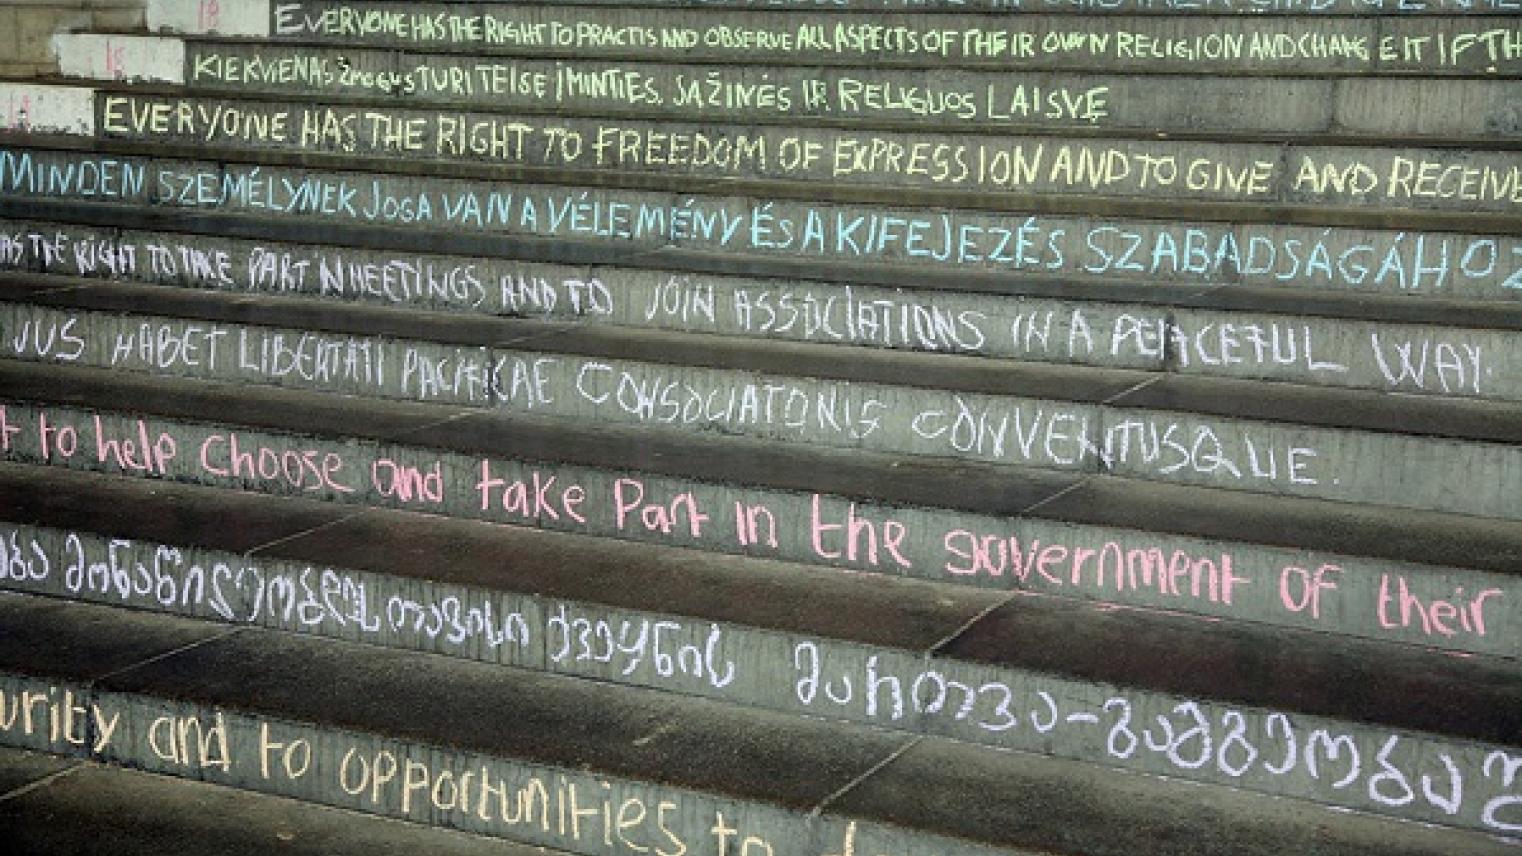 18 EVERYONE HAS THE RIGHT TO PRACTIS AND OBSERVE ALL ASPECTS OF THEIR OWN RELIGION AND CHANGE IT IF TH
KIEKVIENAS ŽmoguS TURI TEISE Į MINTIES, SĄŽINĖS IR RELIGIJOS LAISVĘ
EVERYONE HAS THE RIGHT TO FREEDOM OF EXPRESSION AND TO GIVE AND RECEIVE
MINDEN SZEMÉLYNEK JOGA VAN A VÉLEMÉNY ÉS A KIFEJEZÉS SZABADSÁGÁHOZ
AS THE RIGHT TO TAKE PART IN MEETINGS AND TO JOIN ASSOCIATIONS IN A PEACEFUL WAY.
JUS HABET LIBERTATI PACIFICAE CONSOCIATONIS CONVENTUSQUE.
t to help choose and take Part in the government of their
ება მონაწილეობდეს თავისი ქვეყნის მართვა-გამგეობაშ
urity and to opportunities to